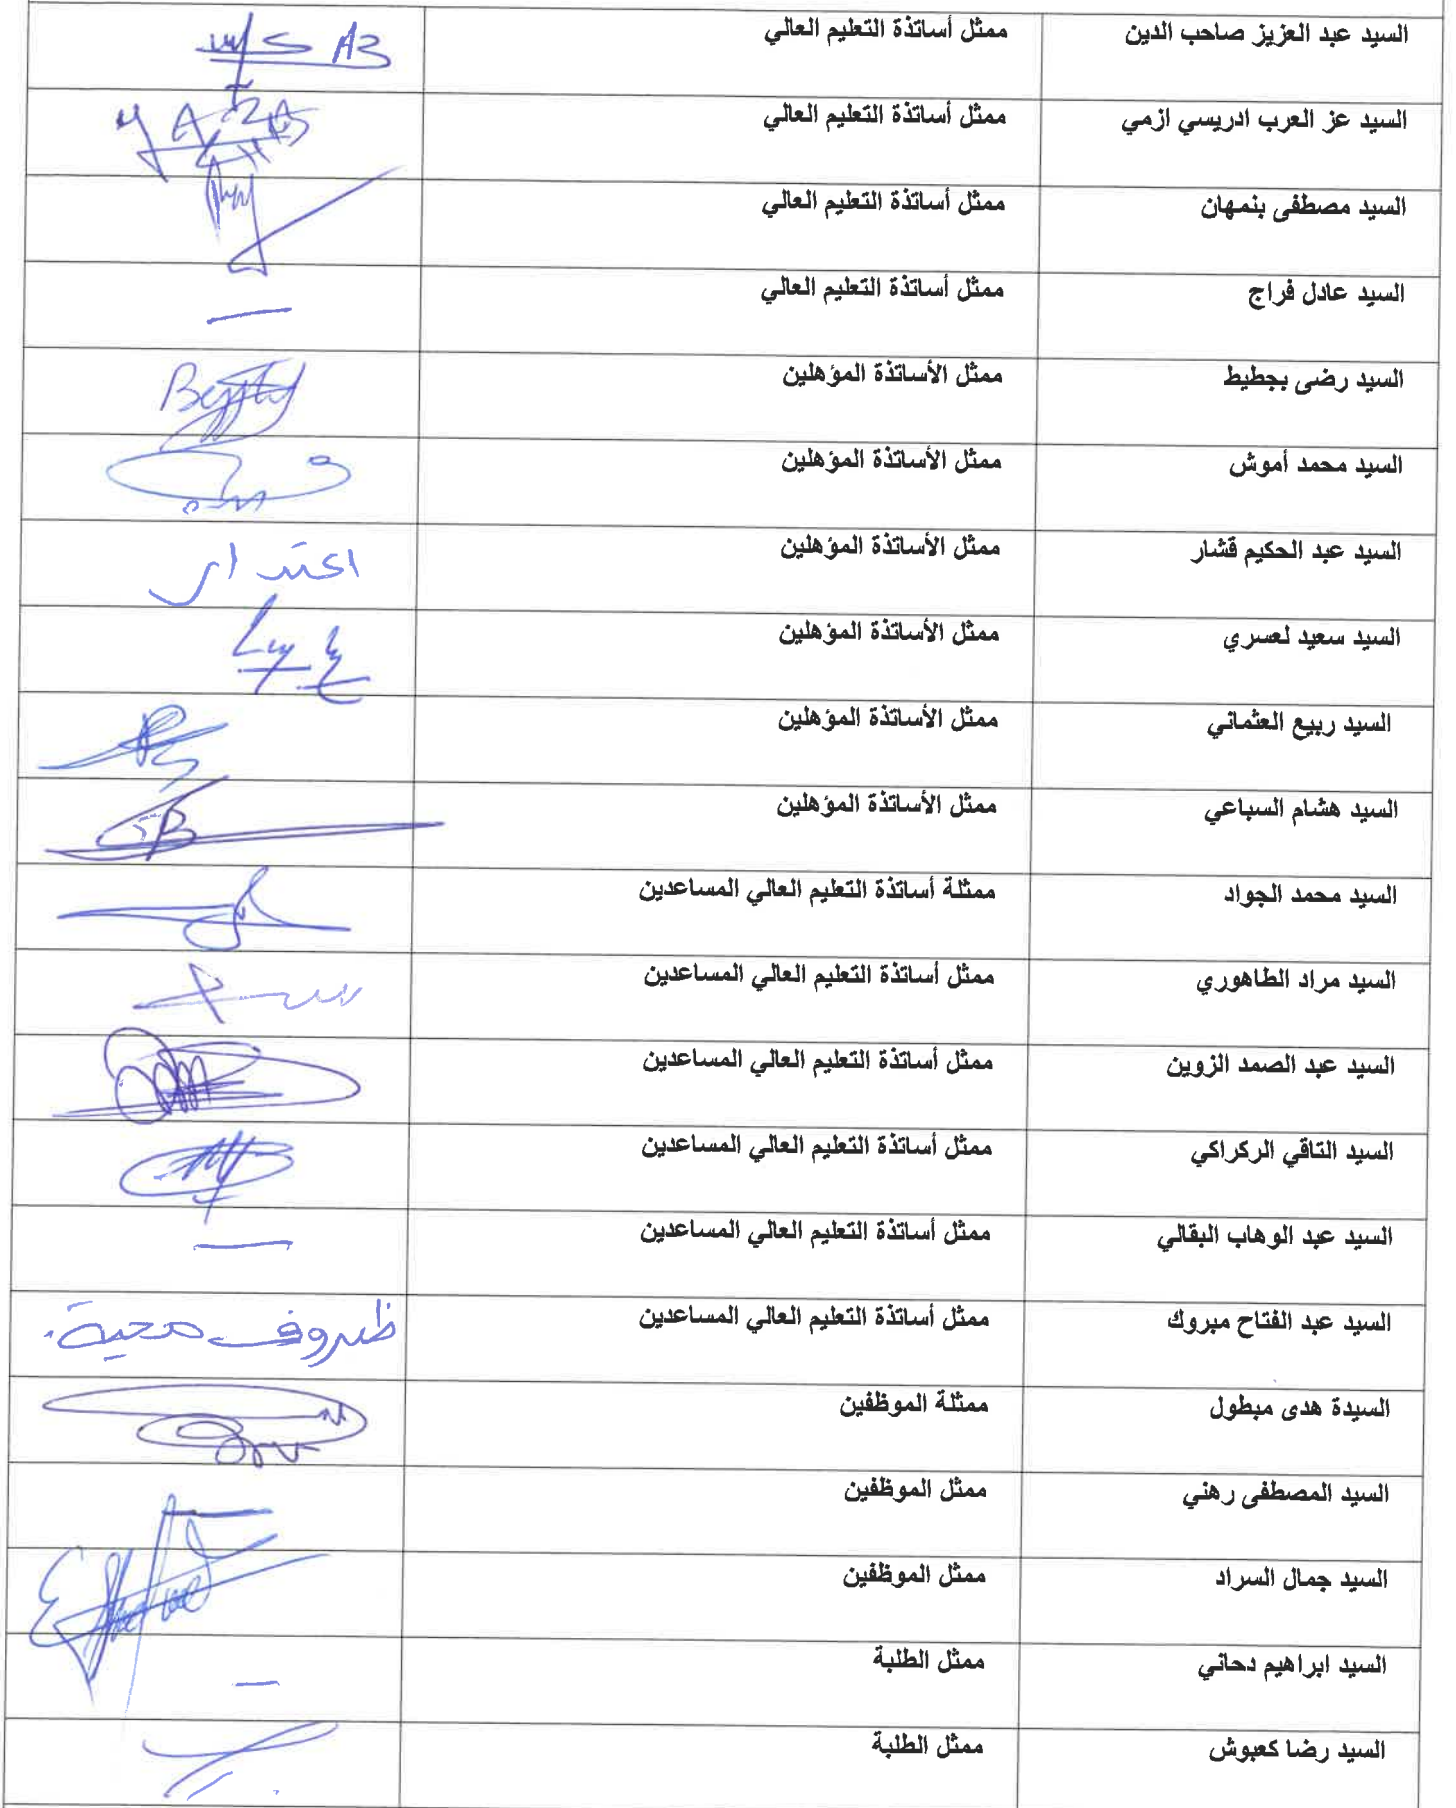 السيد عبد العزيز صاحب الدين ممثل أساتذة التعليم العالي
السيد عز العرب ادريسي ازمي ممثل أساتذة التعليم العالي
السيد مصطفى بنمهان ممثل أساتذة التعليم العالي
السيد عادل فراج ممثل أساتذة التعليم العالي
السيد رضى بجطيط ممثل الأساتذة المؤهلين
السيد محمد أموش ممثل الأساتذة المؤهلين
السيد عبد الحكيم قشار ممثل الأساتذة المؤهلين اعتدار
السيد سعيد لعسري ممثل الأساتذة المؤهلين
السيد ربيع العثماني ممثل الأساتذة المؤهلين
السيد هشام السباعي ممثل الأساتذة المؤهلين
السيد محمد الجواد ممثلة أساتذة التعليم العالي المساعدين
السيد مراد الطاهوري ممثل أساتذة التعليم العالي المساعدين
السيد عبد الصمد الزوين ممثل أساتذة التعليم العالي المساعدين
السيد التاقي الركراكي ممثل أساتذة التعليم العالي المساعدين
السيد عبد الوهاب البقالي ممثل أساتذة التعليم العالي المساعدين
السيد عبد الفتاح مبروك ممثل أساتذة التعليم العالي المساعدين ظروف صحية.
السيدة هدى مبطول ممثلة الموظفين
السيد المصطفى رهني ممثل الموظفين
السيد جمال السراد ممثل الموظفين
السيد ابراهيم دحاني ممثل الطلبة
السيد رضا كعبوش ممثل الطلبة